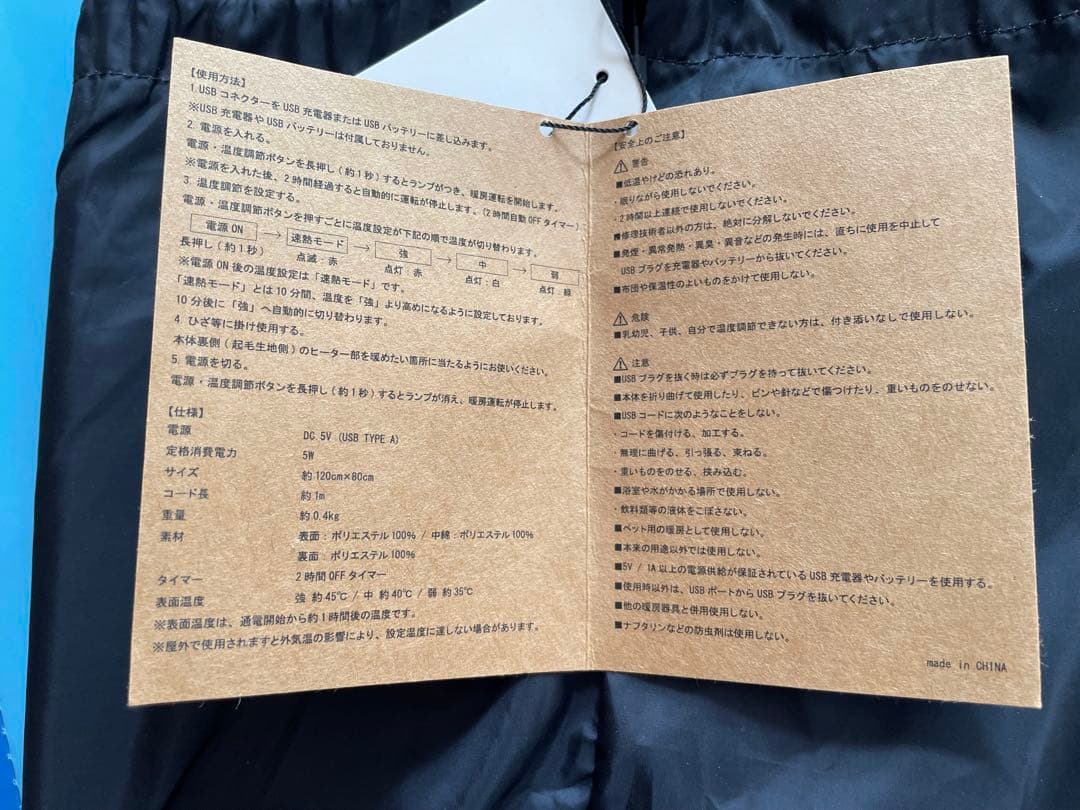 【使用方法】
1.USBコネクターをUSB充電器またはUSBバッテリーに差し込みます。
※USB充電器やUSBバッテリーは付属しておりません。
2.電源を入れる。
電源・温度調節ボタンを長押し(約1秒)するとランプがつき、暖房運転を開始します。
※電源を入れた後、2時間経過すると自動的に運転が停止します。(2時間自動OFFタイマー)
3.温度調節を設定する。
電源・温度調節ボタンを押すごとに温度設定が下記の順で温度が切り替わります。
電源ON → 速熱モード → 強 → 中 → 弱
長押し(約1秒) 点滅:赤 点灯:赤 点灯:白 点灯:緑
※電源ON後の温度設定は「速熱モード」です。
「速熱モード」とは10分間、温度を「強」より高めになるように設定しております。
10分後に「強」へ自動的に切り替わります。
4.ひざ等に掛け使用する。
本体裏側(起毛生地側)のヒーター部を暖めたい箇所に当たるようにお使いください。
5.電源を切る。
電源・温度調節ボタンを長押し(約1秒)するとランプが消え、暖房運転が停止します。
【仕様】
電源 DC 5V (USB TYPE A)
定格消費電力 5W
サイズ 約120cm×80cm
コード長 約1m
重量 約0.4kg
素材 表面:ポリエステル100% / 中綿:ポリエステル100%
裏面:ポリエステル100%
タイマー 2時間OFFタイマー
表面温度 強 約45℃ / 中 約40℃ / 弱 約35℃
※表面温度は、通電開始から約1時間後の温度です。
※屋外で使用されますと外気温の影響により、設定温度に達しない場合があります。
【安全上のご注意】
⚠ 警告
■低温やけどの恐れあり。
・眠りながら使用しないでください。
・2時間以上連続で使用しないでください。
■修理技術者以外の方は、絶対に分解しないでください。
■発煙・異常発熱・異臭・異音などの発生時には、直ちに使用を中止して
USBプラグを充電器やバッテリーから抜いてください。
■布団や保温性のよいものをかけて使用しない。
⚠ 危険
■乳幼児、子供、自分で温度調節できない方は、付き添いなしで使用しない。
⚠ 注意
■USBプラグを抜く時は必ずプラグを持って抜いてください。
■本体を折り曲げて使用したり、ピンや針などで傷つけたり、重いものをのせない。
■USBコードに次のようなことをしない。
・コードを傷付ける、加工する。
・無理に曲げる、引っ張る、束ねる。
・重いものをのせる、挟み込む。
■浴室や水がかかる場所で使用しない。
・飲料類等の液体をこぼさない。
■ペット用の暖房として使用しない。
■本来の用途以外では使用しない。
■5V / 1A以上の電源供給が保証されているUSB充電器やバッテリーを使用する。
■使用時以外は、USBポートからUSBプラグを抜いてください。
■他の暖房器具と併用使用しない。
■ナフタリンなどの防虫剤は使用しない。
made in CHINA